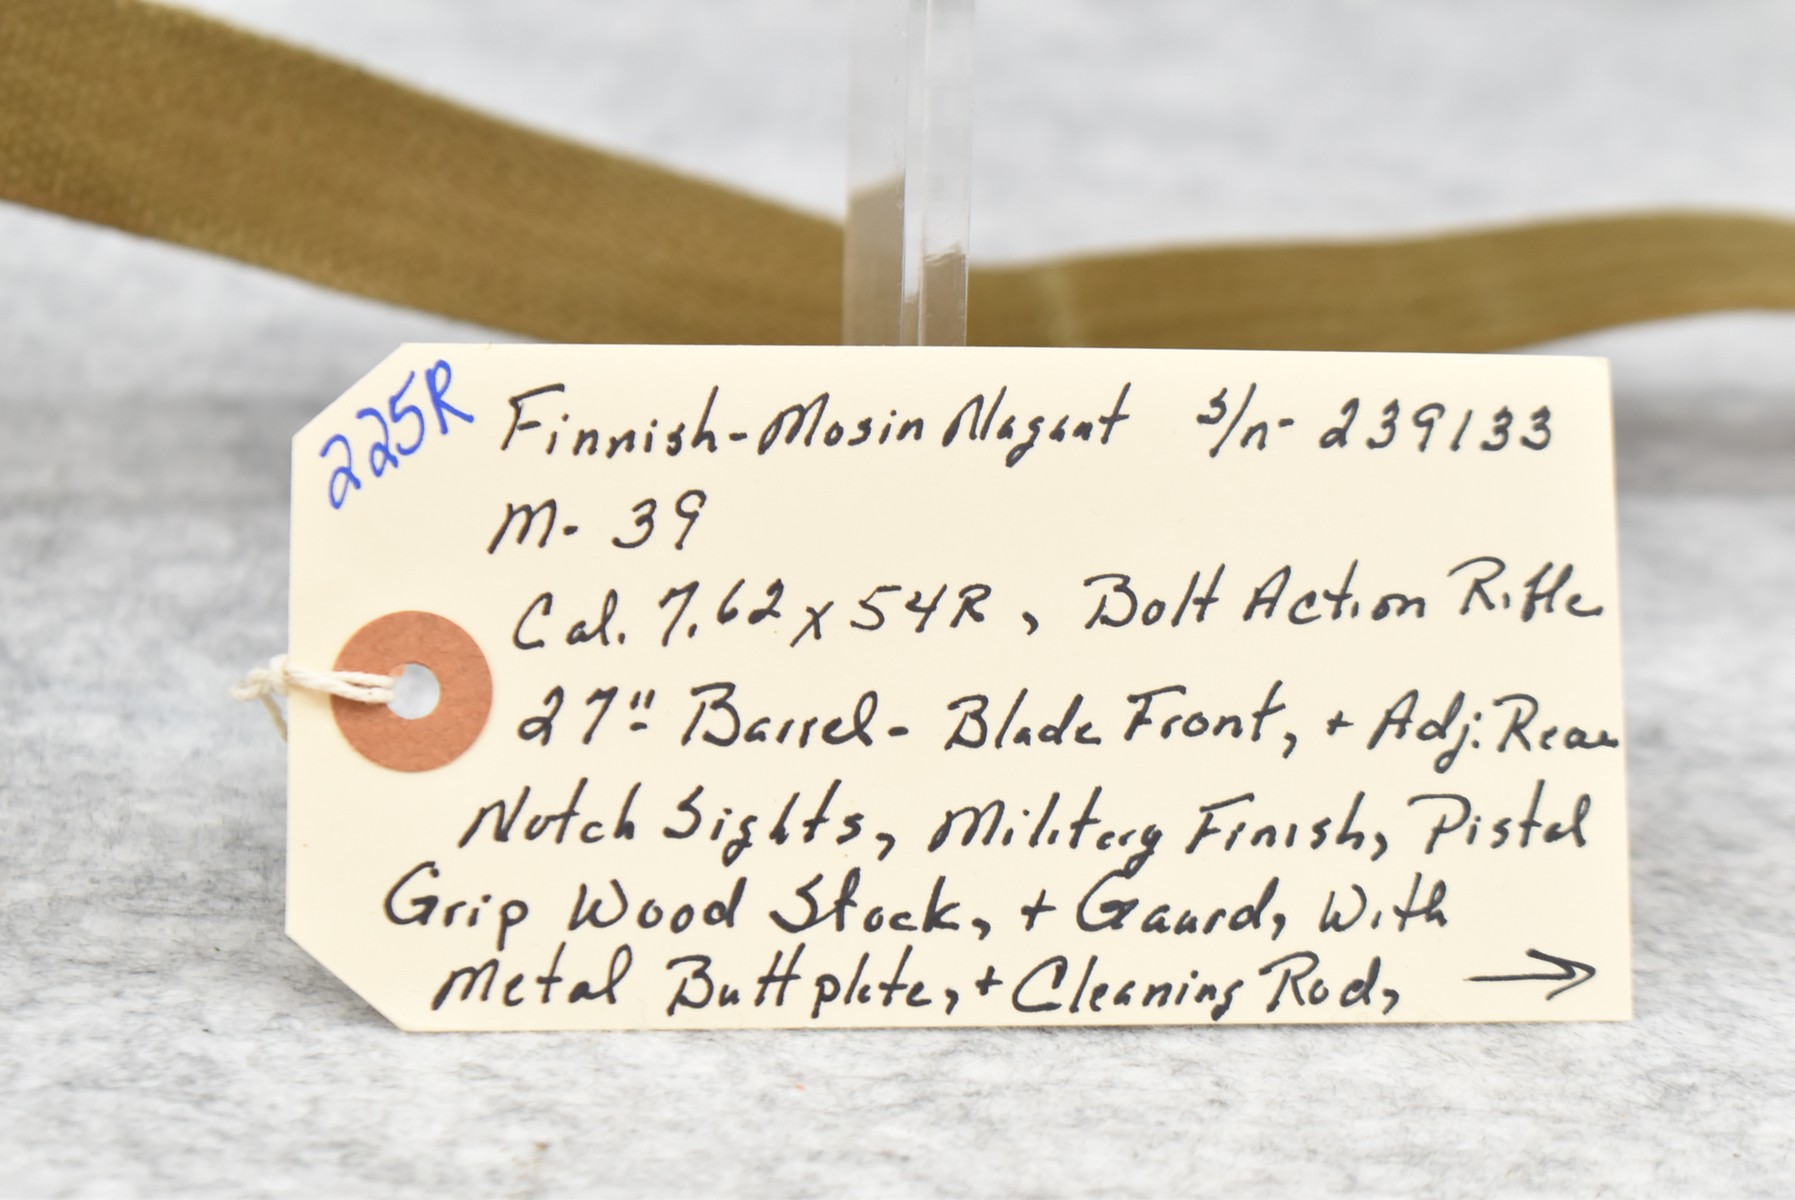 225R
Finnish-Mosin Nagant s/n- 239133
M- 39
Cal. 7.62 x 54R, Bolt Action Rifle
27" Barrel- Blade Front, + Adj. Rear
Notch Sights, Military Finish, Pistol
Grip Wood Stock, + Gaurd, With
Metal Buttplate, + Cleaning Rod, →